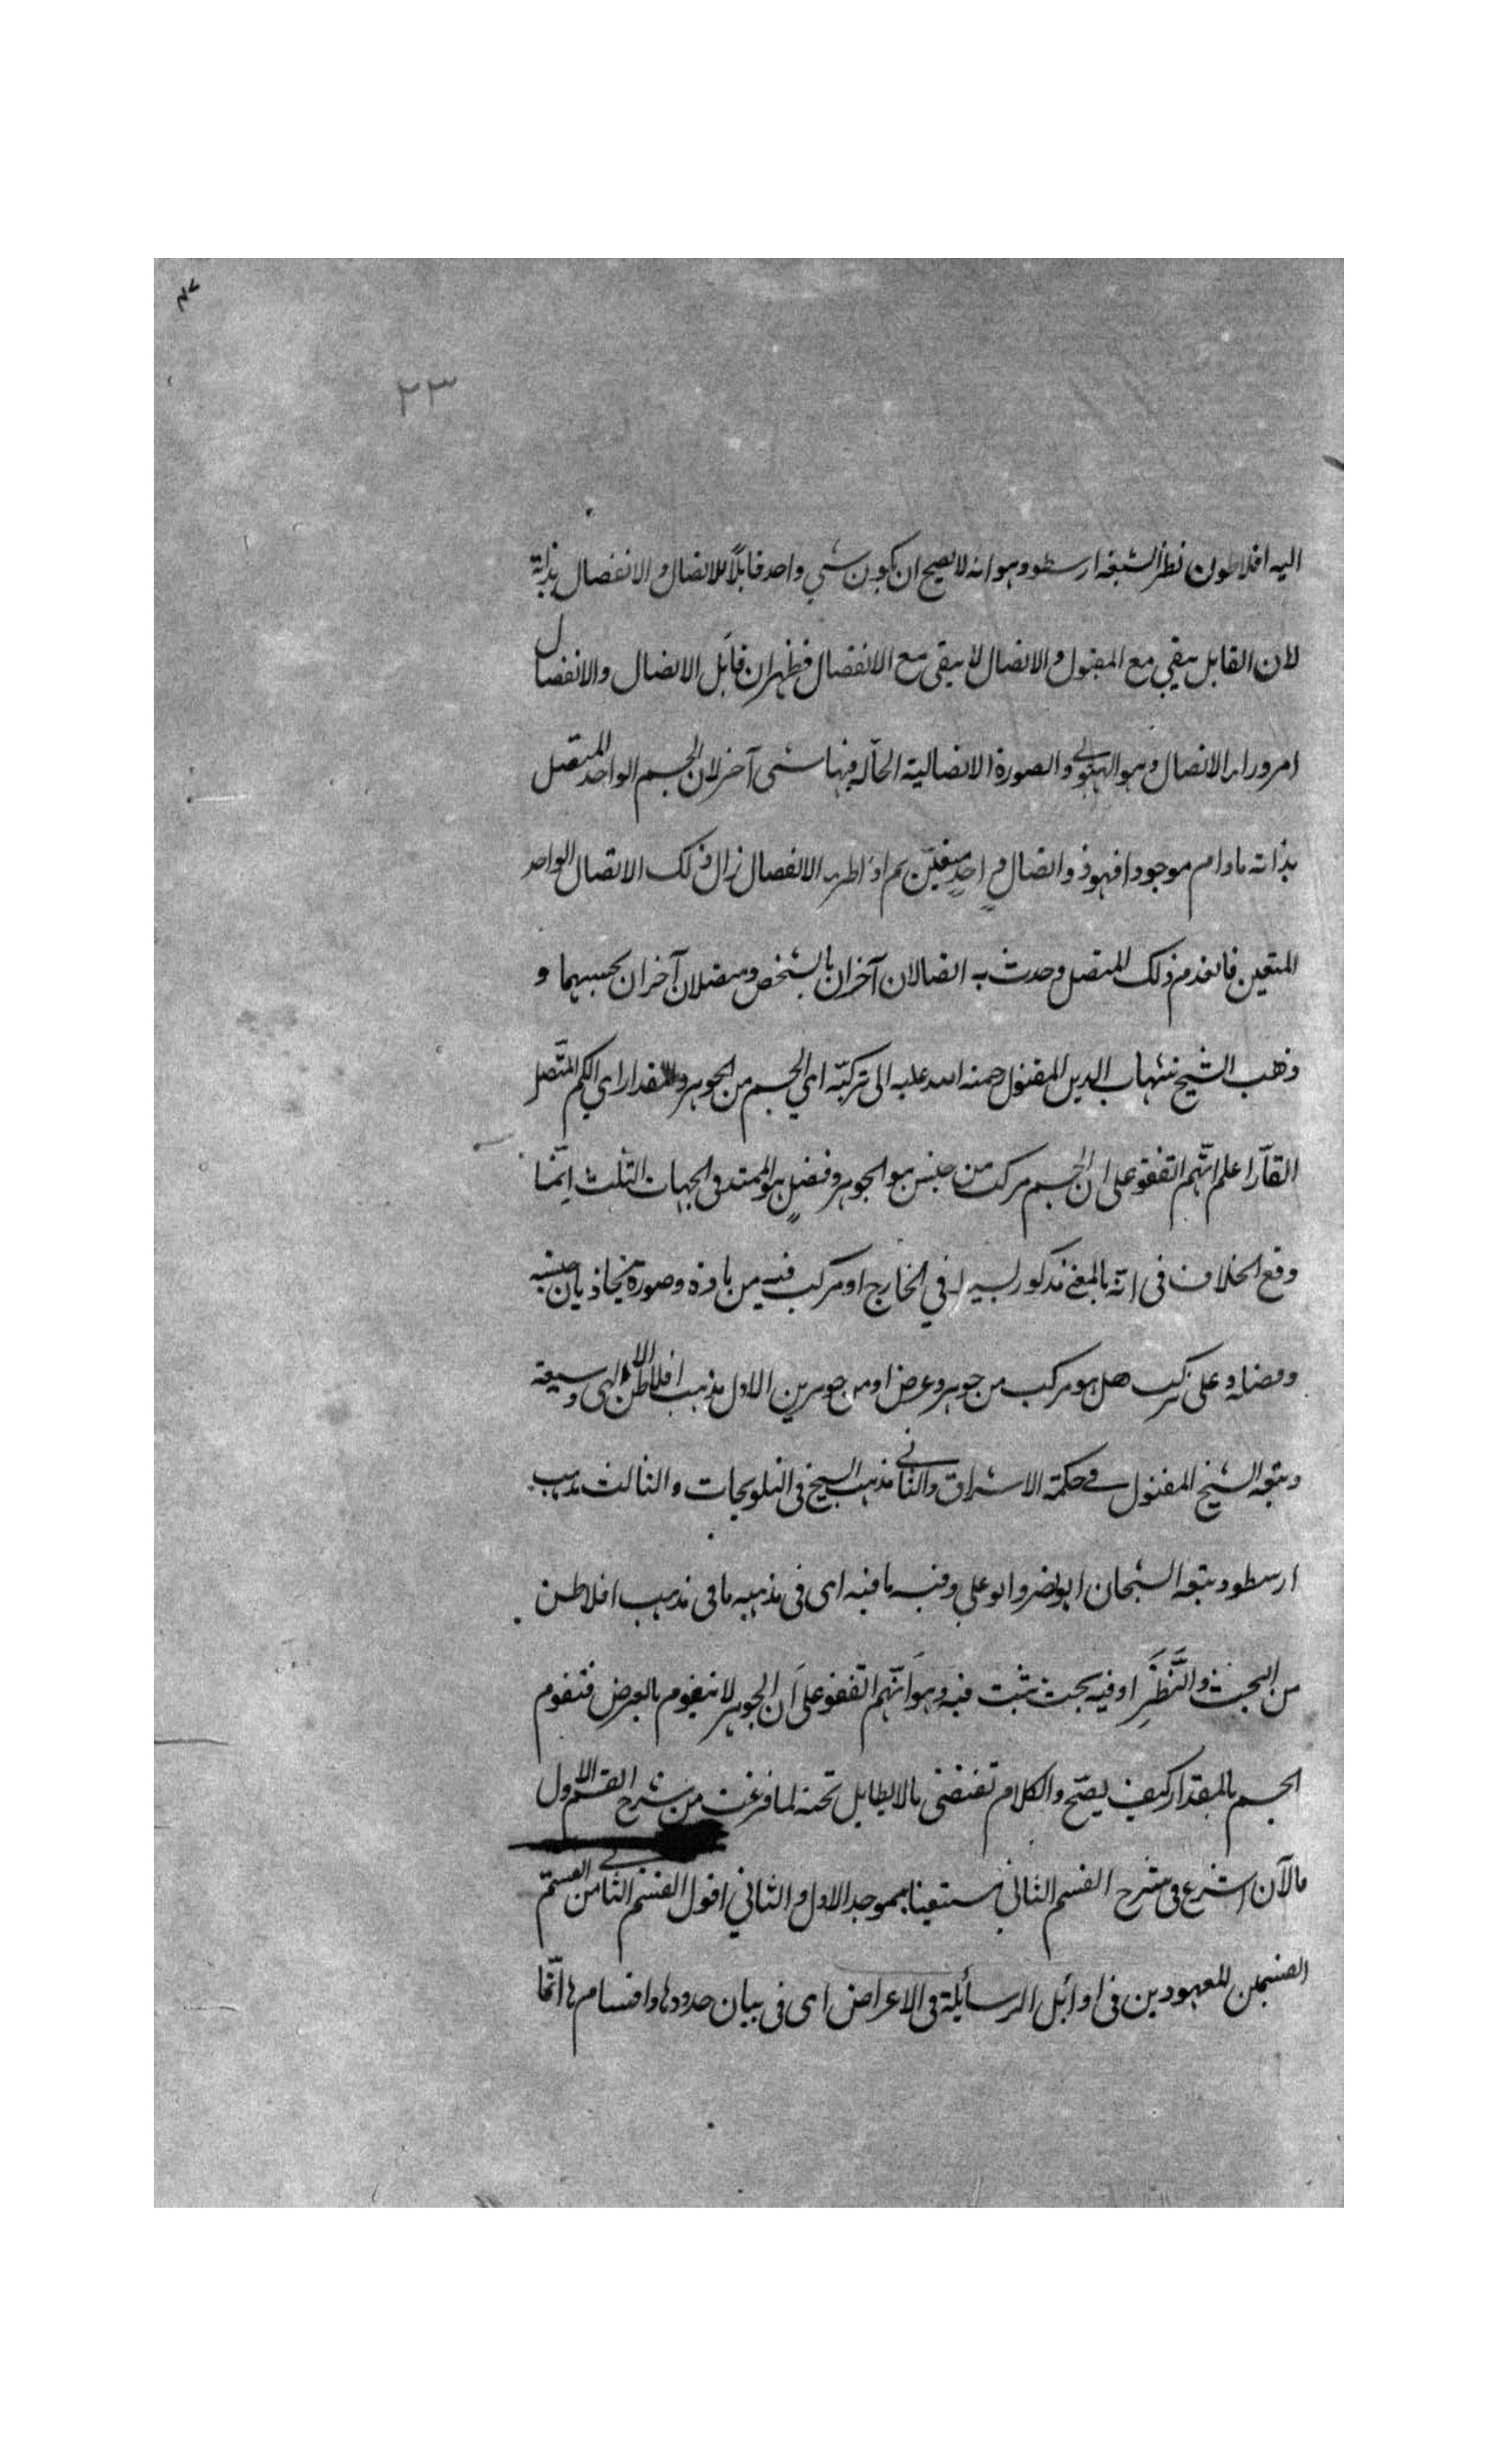 ٢٣
اليه افلاطون نظر الشيخه ارسطو وهو انه لا يصح ان يكون شيء واحد قابلاً للاتصال والانفصال بذاته
لان القابل يبقى مع المقبول والاتصال لا يبقى مع الانفصال فظهر ان قابل الاتصال والانفصال
امر وراء الاتصال وهو الهيولى والصورة الاتصالية الحالّة فيها شيء آخر لان الجسم الواحد المتصل
بذاته مادام موجودا فهو ذو اتصال واحدٍ متعيّن ثم اذا طرء الانفصال زال ذلك الاتصال الواحد
المتعين فانعدم ذلك المتصل وحدث به اتصالان آخران بالشخص ومتصلان آخران بحسبهما و
ذهب الشيخ شهاب الدين المقتول رحمة الله عليه الى تركبّه اي الجسم من الجوهر والمقدار اي الكم المتّصل
القارّ اعلم انّهم اتفقو على ان الجسم مركب من جنس هو الجوهر وفصلٍ هو الممتد في الجهات الثلث انّما
وقع الخلاف في انه بالمعنى مذكور بسيط في الخارج او مركب فيه من مادة وصورة يحاذيان جنسه
وفصله وعلى تركب هل هو مركب من جوهر وعرض او من جوهرين الاول مذهب افلاطن الالهى وسبقه
وتبعه الشيخ المقتول في حكمة الاشراق والثاني مذهب الشيخ في التلويحات والثالث مذهب
ارسطو وتبعه الشيخان ابو نصر وابو علي وفيه ما فيه اى في مذهبه ما في مذهب افلاطن
من البحث والنَّظَرِ او فيه بحث يثبت فيه وهو انّهم اتفقو على اَن الجوهر لا يتقوم بالعرض فتقوم
الجسم بالمقدار كيف يصحّ والكلام تفنضى بالا يطايل تحته لما فرغت من شرح القسم الاول
فالآن اشرع في شرح القسم الثانى مستعينا بموجد الاول والثاني اقول القسم الثامن القسم
القسيمين المعهودين في اوائل الرسائلة في الاعراض اى في بيان حدودها واقسامها انّما